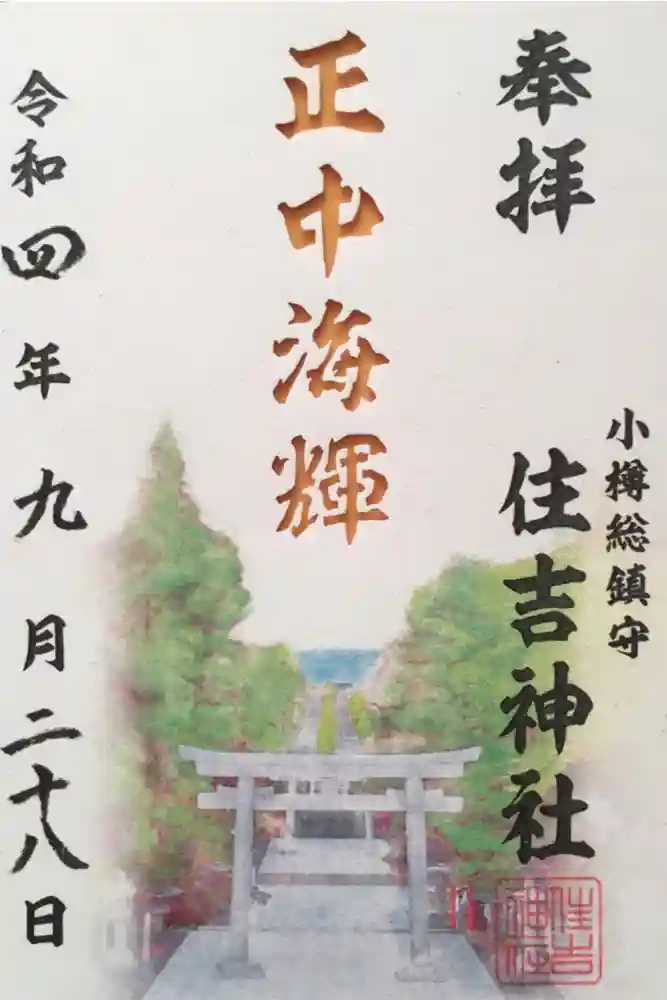 奉拝
小樽総鎮守
住吉神社
正中海輝
令和四年九月二十八日
住吉
神社